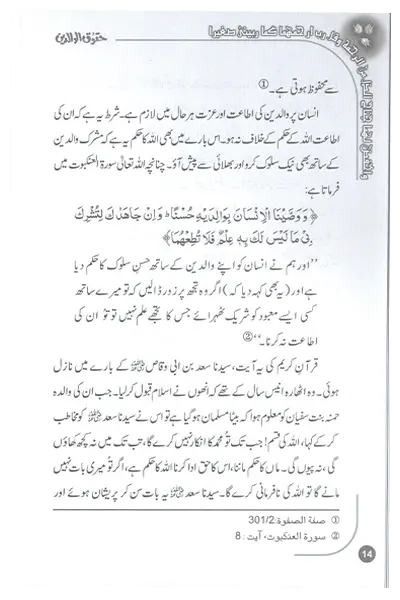 حقوق الوالدین
وقل رب ارحمهما كما ربيني صغيرا
سے محفوظ ہوتی ہے۔①
انسان پر والدین کی اطاعت اور عزت ہر حال میں لازم ہے۔ شرط یہ ہے کہ ان کی
اطاعت اللہ کے حکم کے خلاف نہ ہو۔ اس بارے میں بھی اللہ کا حکم یہ ہے کہ مشرک والدین
کے ساتھ بھی نیک سلوک کرو اور بھلائی سے پیش آؤ۔ چنانچہ اللہ تعالیٰ سورۃ العنکبوت میں
فرماتا ہے:
﴿وَوَصَّيْنَا الْاِنْسَانَ بِوَالِدَيْهِ حُسْنًا وَاِنْ جَاهَدٰكَ لِتُشْرِكَ
بِيْ مَا لَيْسَ لَكَ بِهٖ عِلْمٌ فَلَا تُطِعْهُمَا﴾
’’اور ہم نے انسان کو اپنے والدین کے ساتھ حسن سلوک کا حکم دیا
ہے اور (یہ بھی کہہ دیا کہ) اگر وہ تجھ پر زور ڈالیں کہ تو میرے ساتھ
کسی ایسے معبود کو شریک ٹھہرائے جس کا تجھے علم نہیں تو تو ان کی
اطاعت نہ کرنا۔‘‘②
قرآن کریم کی یہ آیت، سیدنا سعد بن ابی وقاص کے بارے میں نازل
ہوئی۔ وہ اٹھارہ انیس سال کے تھے کہ انھوں نے اسلام قبول کر لیا۔ جب ان کی والدہ
حمنہ بنت سفیان کو معلوم ہوا کہ بیٹا مسلمان ہو گیا ہے تو اس نے سیدنا سعد ﷜ کو مخاطب
کر کے کہا، اللہ کی قسم! جب تک تُو محمد کا انکار نہیں کرے گا، تب تک میں نہ کچھ کھاؤں
گی، نہ پیوں گی۔ ماں کا حکم ماننا، اس کا حق ادا کرنا اللہ کا حکم ہے، اگر تو میری بات نہیں
مانے گا تو اللہ کی نافرمانی کرے گا۔ سیدنا سعد ﷜ یہ بات سن کر پریشان ہوئے اور
① صفة الصفوة: 301/2
② سورة العنكبوت، آیت: 8
14